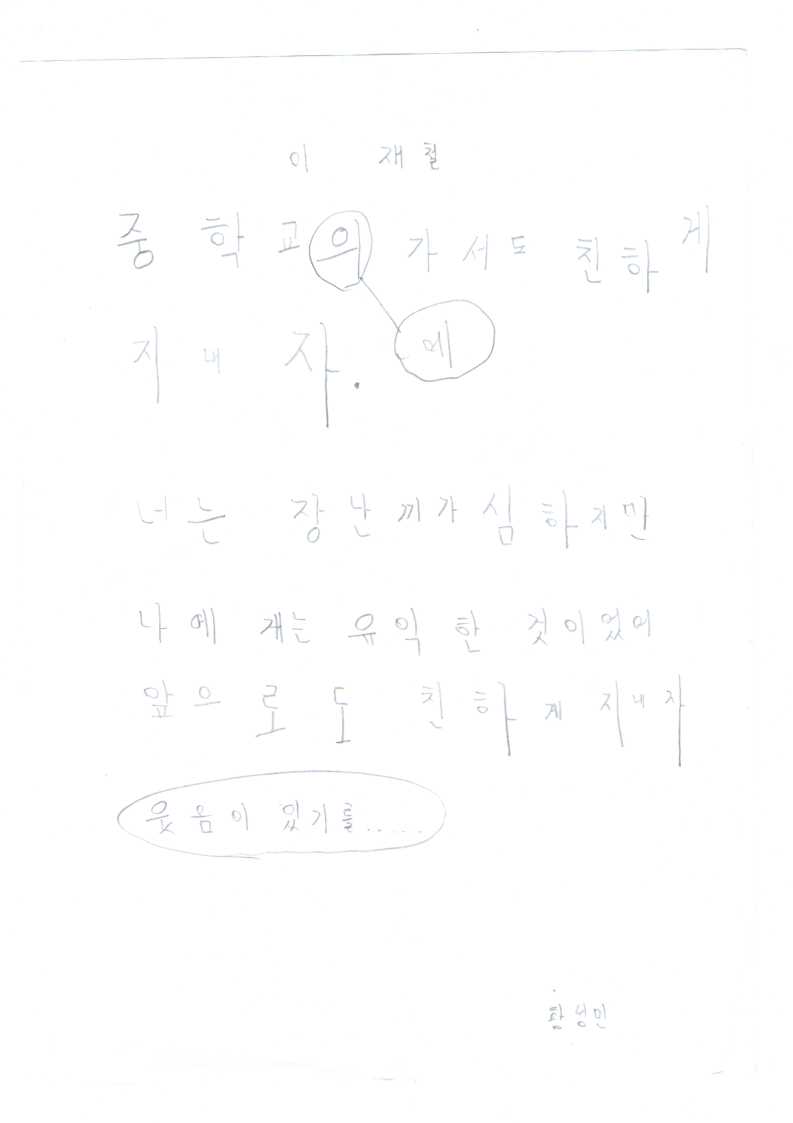 이 재철
중학교의 가서도 친하게
지내자. 에
너는 장난끼가 심하지만
나에 개는 유익한 것이었어
앞으로도 친하게 지내자
웃음이 있기를......
황성민